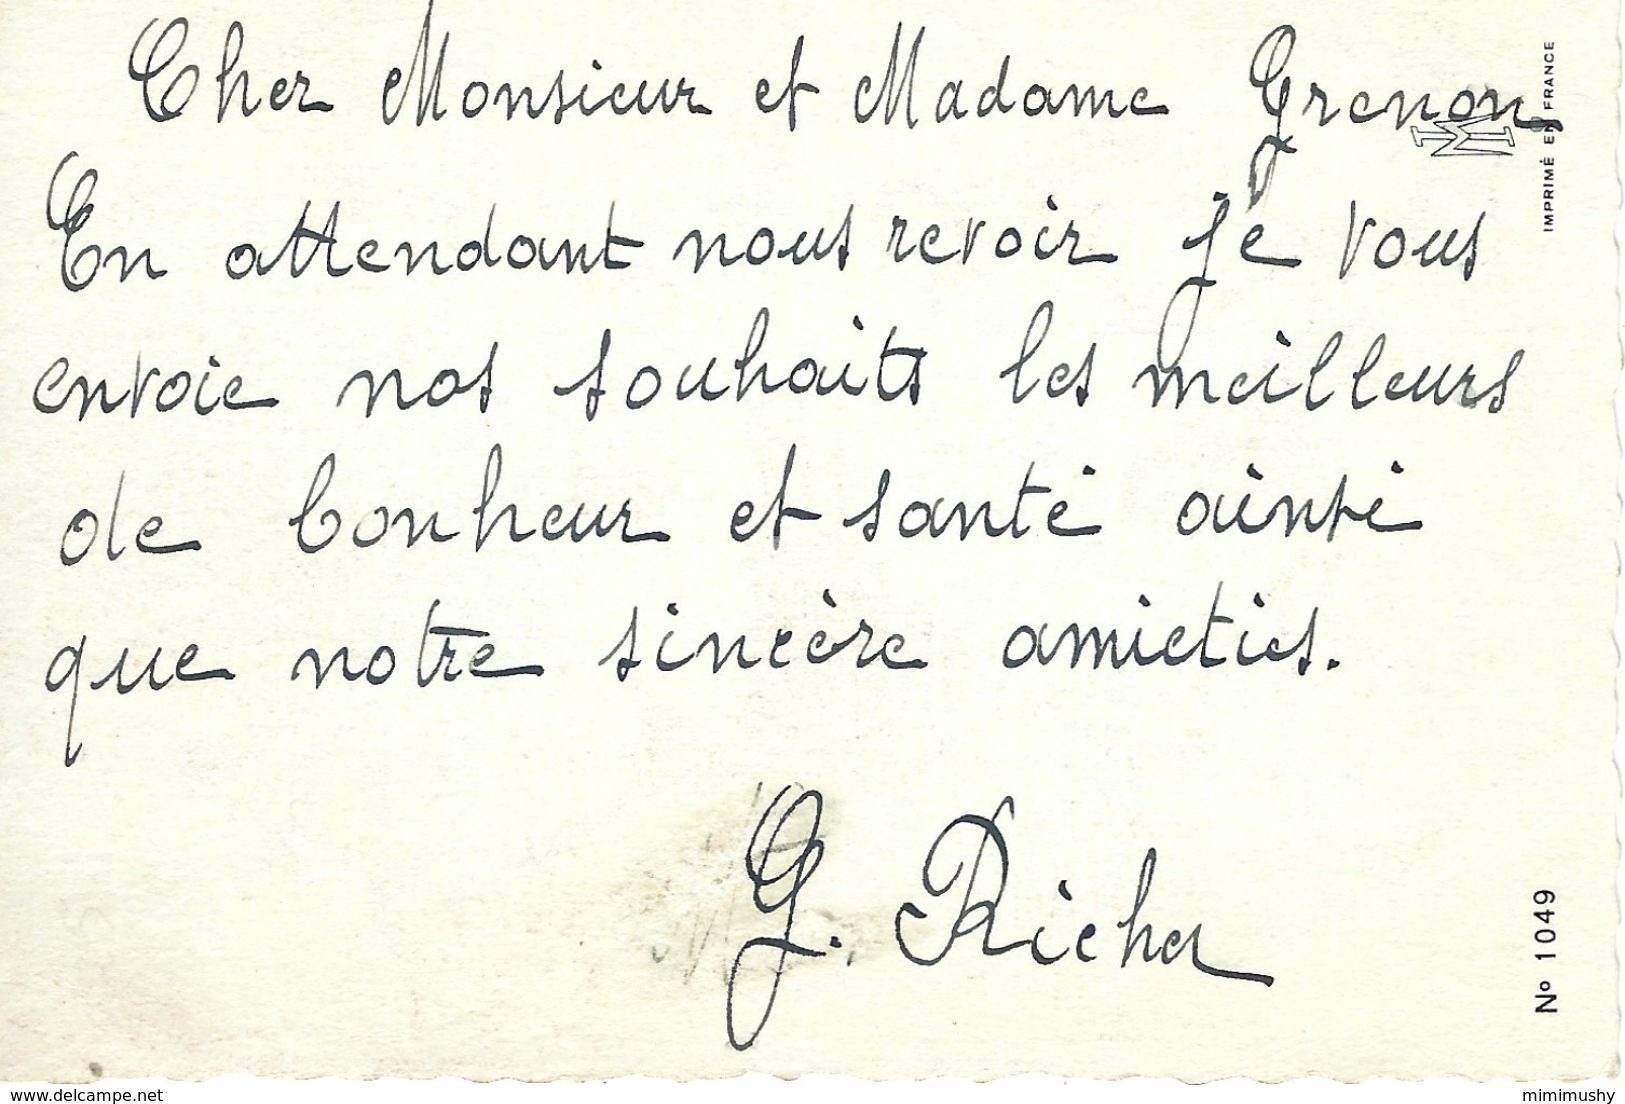 Cher Monsieur et Madame Grenon
En attendant nous revoir je vous
envoie nos souhaits les meilleurs
de bonheur et santé ainsi
que notre sincère amictiés.
G. Richer
IMPRIMÉ EN FRANCE
M
Nº 1049
delcampe.net
mimimushy